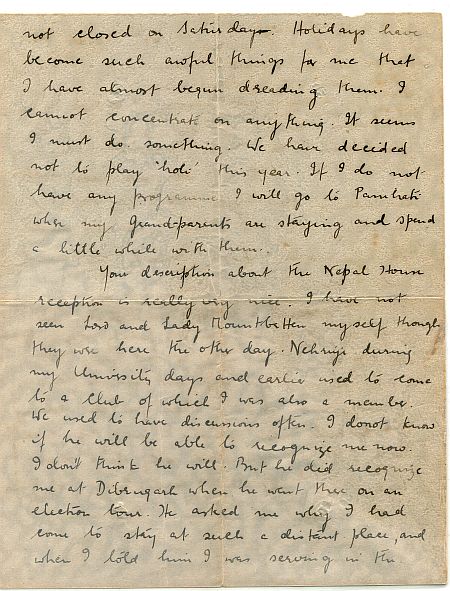 not closed on Saturdays. Holidays have
become such awful things for me that
I have almost begun dreading them. I
cannot concentrate on anything. It seems
I must do something. We have decided
not to play 'holi' this year. If I do not
have any programme I will go to Panihati
where my Grand-parents are staying and spend
a little while with them.
Your description about the Nepal House
reception is really very nice. I have not
seen Lord and Lady Mountbatten myself though
they were here the other day. Nehruji during
my University days and earlier used to come
to a Club of which I was also a member.
We used to have discussions often. I donot know
if he will be able to recognize me now.
I don't think he will. But he did recognize
me at Dibrugarh when he went there on an
election tour. He asked me why I had
come to stay at such a distant place, and
when I told him I was serving in the